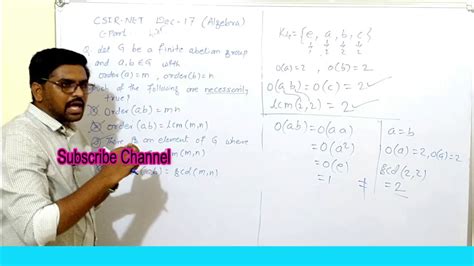 CSIR-NET Dec-17 (Algebra)
Let G be a finite abelian group
and a, b ∈ G with
order(a) = m, order(b) = n
of the following are necessarily
true?
order(ab) = mn
order(ab) = lcm(m,n)
is an element of G where
(m,n)
= gcd(m,n)
K₄ = {e, a, b, c}
1 2 2 2
O(a) = 2, O(b) = 2
O(a b) = O(c) = 2
lcm(2,2) = 2
O(ab) = O(a a)
= O(a²)
= O(e)
= 1 ≠
a = b
O(a) = 2, O(b) = 2
gcd(2,2)
= 2
Subscribe Channel